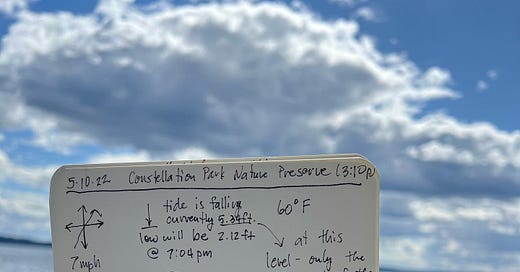 5.10.22 Constellation Park Nature Preserve (3:10p
tide is falling
currently 5.34ft.
low will be 2.12ft
@ 7:04pm
7mph
60°F
at this
level - only the